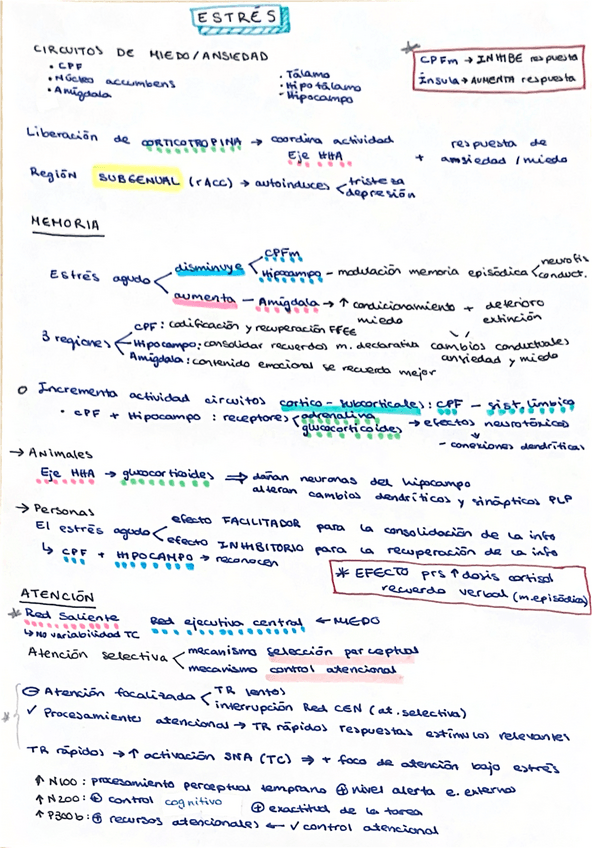 ESTRÉS
CIRCUITOS DE MIEDO/ANSIEDAD
• CPF
• Núcleo accumbens
• Amígdala
• Tálamo
• Hipotálamo
- Hipocampo
* CPFm → INHIBE respuesta
Ínsula → AUMENTA respuesta
Liberación de CORTICOTROPINA → coordina actividad Eje HHA + respuesta de ansiedad / miedo
Región SUBGENUAL (rACC) → autoinduces < tristeza
depresión
MEMORIA
Estrés agudo < disminuye < CPFm
Hipocampo - modulación memoria episódica < neurofis
conduct.
aumenta - Amígdala → ↑ condicionamiento miedo + deterioro extinción
3 regiones < CPF: codificación y recuperación FFEE
Hipocampo: consolidar recuerdos m. declarativa
Amígdala: contenido emocional se recuerda mejor
cambios conductuales
ansiedad y miedo
O Incrementa actividad circuitos cortico-subcorticales: CPF - sist. límbico
• CPF + Hipocampo: receptores < adrenalina
glucocorticoides → efectos neurotóxicos
- conexiones dendríticas
→ Animales
Eje HHA → glucocorticoides ⇒ dañan neuronas del hipocampo
alteran cambios dendríticos y sinápticos PLP
→ Personas
El estrés agudo < efecto FACILITADOR para la consolidación de la info
efecto INHIBITORIO para la recuperación de la info
↳ CPF + HIPOCAMPO → reconocen
* EFECTO prs ↑ dosis cortisol
recuerdo verbal (m. episódica)
ATENCIÓN
* Red Saliente Red ejecutiva central ← MIEDO
↳ NO variabilidad TC
Atención selectiva < mecanismo selección perceptual
mecanismo control atencional
⊖ Atención focalizada < TR lentos
interrupción Red CEN (at. selectiva)
* ✓ Procesamiento atencional → TR rápidos respuestas estímulos relevantes
TR rápidos → ↑ activación SNA (TC) ⇒ + foco de atención bajo estrés
↑ N100: procesamiento perceptual temprano ⊕ nivel alerta e. externos
↑ N200: ⊕ control cognitivo ⊕ exactitud de la tarea
↑ P300b: ⊕ recursos atencionales ← ✓ control atencional